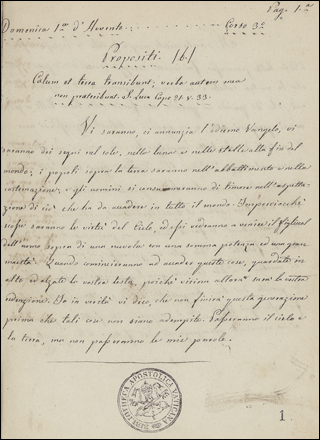 Pag. 1.a
Domenica 1.ma d'Avvento. Corso 3.o
Propositi. (6.)
Cœlum et terra transibunt: verba autem mea
non præteribunt. S. Luca Capo 21. v. 33.
Vi saranno, ci annunzia l'odierno Vangelo, vi
saranno dei segni nel sole, nella luna e nelle stelle alla fin del
mondo; i popoli sopra la terra saranno nell'abbattimento e nella
costernazione; e gli uomini si consumeranno di timore nell'aspetta-
zione di ciò che ha da accadere in tutto il mondo. Imperciocchè
le virtù del Cielo, ed essi vedranno a venire il figliuol
dell'uomo sopra di una nuvola con una somma potenza ed una gran
maestà. Quando cominceranno ad accader queste cose, guardate in
alto ed alzate la vostra testa, perchè vicina allora sarà la vostra
redenzione. Io in verità vi dico, che non finirà questa generazione
prima che tali cose non siano adempite. Passeranno il cielo e
la terra, ma non passeranno le mie parole.
BIBLIOTHECA APOSTOLICA VATICANA
1